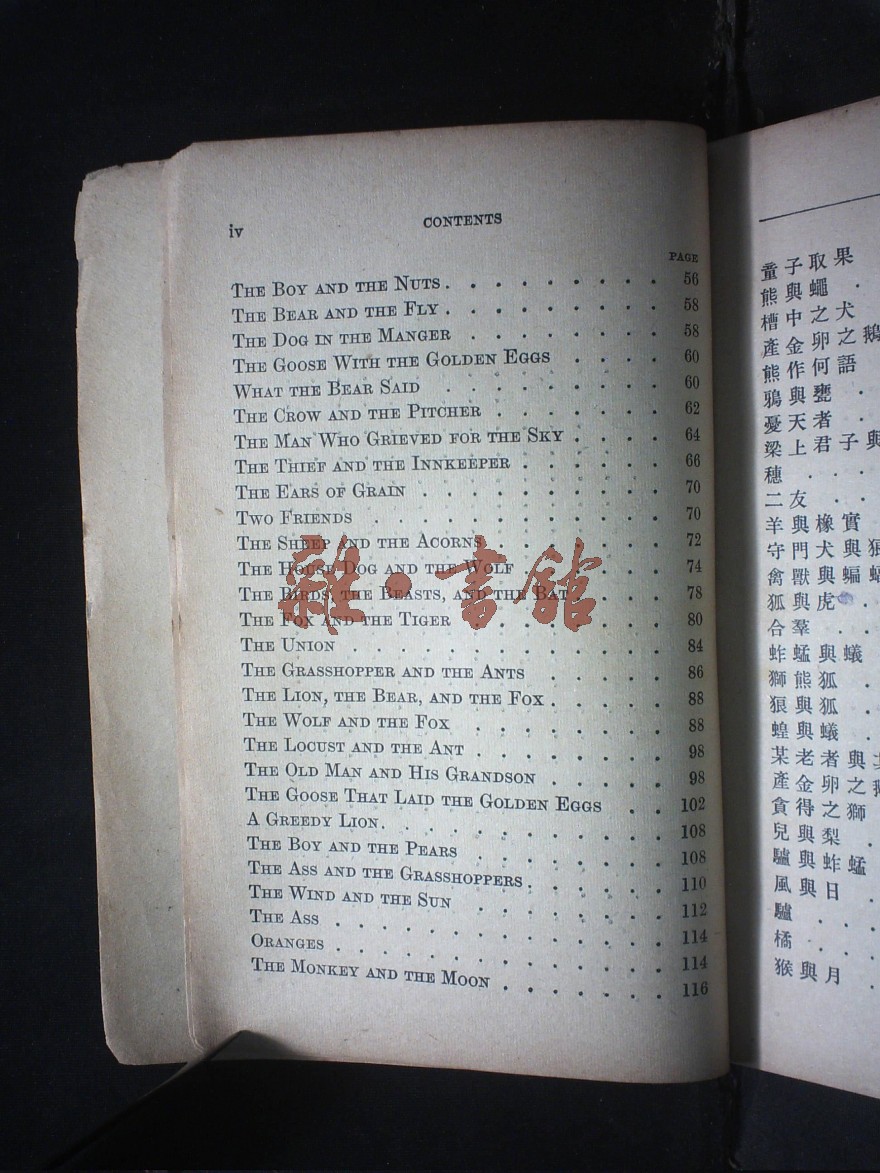 iv CONTENTS
PAGE
THE BOY AND THE NUTS . . . . . . . . . 56
THE BEAR AND THE FLY . . . . . . . . . 58
THE DOG IN THE MANGER . . . . . . . . 58
THE GOOSE WITH THE GOLDEN EGGS . . . . 60
WHAT THE BEAR SAID . . . . . . . . . 60
THE CROW AND THE PITCHER . . . . . . . 62
THE MAN WHO GRIEVED FOR THE SKY . . . . 64
THE THIEF AND THE INNKEEPER . . . . . . 66
THE EARS OF GRAIN . . . . . . . . . . 70
TWO FRIENDS . . . . . . . . . . . . 70
THE SHEEP AND THE ACORNS . . . . . . . 72
THE HOUSE DOG AND THE WOLF . . . . . . 74
THE BIRDS, THE BEASTS, AND THE BAT . . . . 78
THE FOX AND THE TIGER . . . . . . . . 80
THE UNION . . . . . . . . . . . . . 84
THE GRASSHOPPER AND THE ANTS . . . . . 86
THE LION, THE BEAR, AND THE FOX . . . . . 88
THE WOLF AND THE FOX . . . . . . . . 88
THE LOCUST AND THE ANT . . . . . . . . 98
THE OLD MAN AND HIS GRANDSON . . . . . 98
THE GOOSE THAT LAID THE GOLDEN EGGS . . 102
A GREEDY LION . . . . . . . . . . . 108
THE BOY AND THE PEARS . . . . . . . . 108
THE ASS AND THE GRASSHOPPERS . . . . . . 110
THE WIND AND THE SUN . . . . . . . . 112
THE ASS . . . . . . . . . . . . . 114
ORANGES . . . . . . . . . . . . . 114
THE MONKEY AND THE MOON . . . . . . . 116
雜·書館
童子取果
熊與蠅 .
槽中之犬
產金卵之鵝
熊作何語
鴉與甕 .
憂天者 .
梁上君子與
穗 . . .
二友 . .
羊與橡實
守門犬與狼
禽獸與蝙蝠
狐與虎 .
合羣 . .
蚱蜢與蟻
獅熊狐 .
狼與狐 .
蝗與蟻 .
某老者與其
產金卵之鵝
貪得之獅
兒與梨 .
驢與蚱蜢
風與日 .
驢 . .
橘 . .
猴與月 .